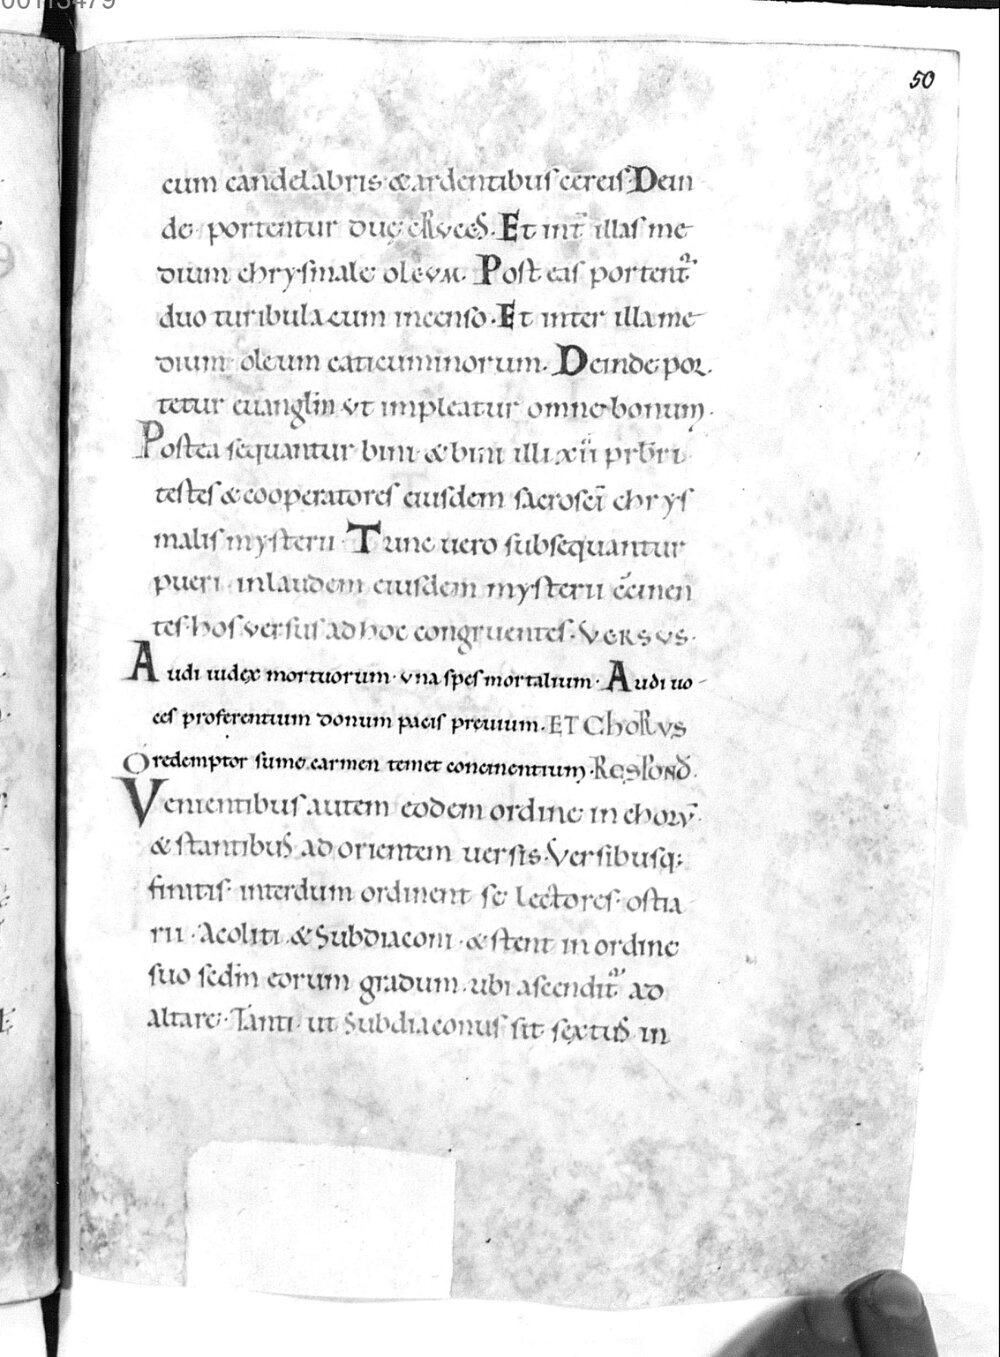 00113479
50
cum candelabris & ardentibus cereis. Dein
de portentur duę cRuceS. Et int̄ illas me
dium chrysmale oleum. Post eas portent̄
duo turibula cum incenso. Et inter illa me
dium oleum caticuminorum. Deinde por
tetur euanglin ut impleatur omne bonum.
Postea sequantur bini & bini illi xii prb̄ri
testes & cooperatores eiusdem sacrosc̄i chrys
malis mysterii. Tunc uero subsequantur
pueri in laudem eiusdem mysterii c̄cinen
tes hos versus ad hoc congruentes. VERSVS.
Audi iudex mortuorum. una spes mortalium. Audi uo
ces proferentium donum pacis preuium. ET ChoRVS
O redemptor sume carmen temet concinentium. ResPonđ.
Venientibus autem eodem ordine in chorū.
& stantibuS ad orientem uersis. Versibusq;
finitis. interdum ordinent se lectores. ostia
rii. Acoliti & Subdiaconi. & stent in ordine
suo sedm eorum gradum. ubi ascendit̄ ad
altare. Tanti ut Subdiaconus sit sextuS in